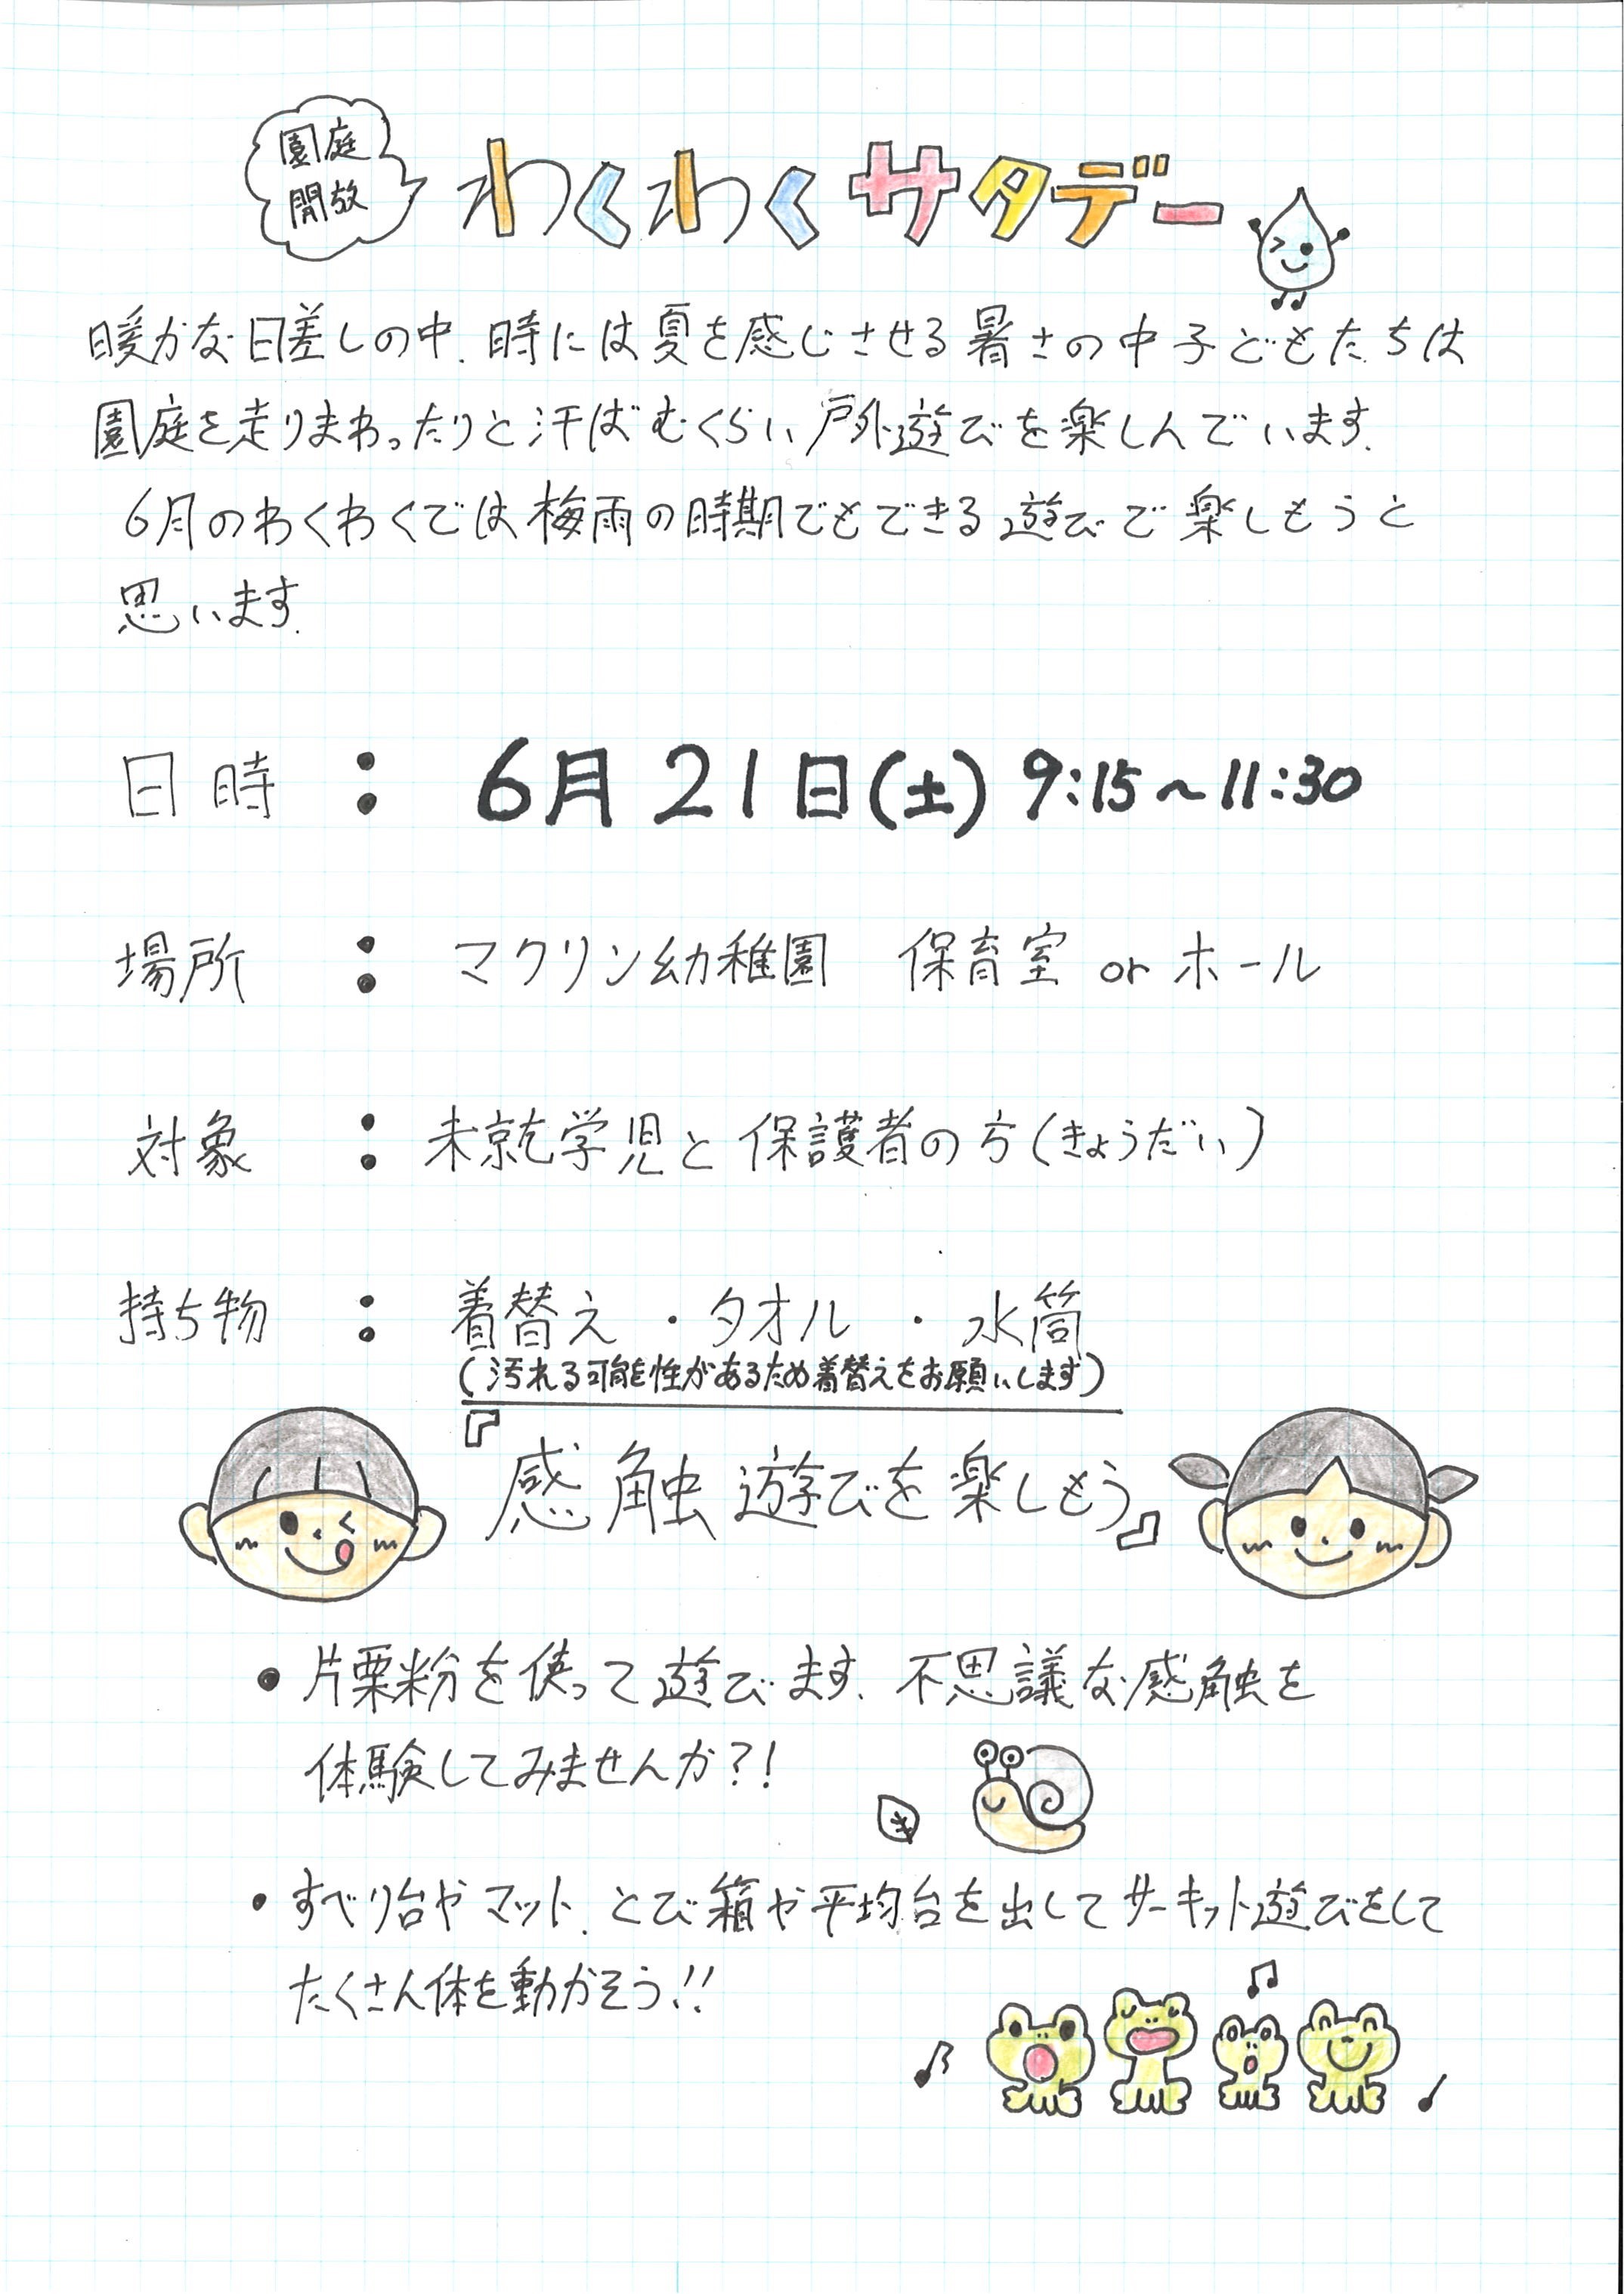 園庭
開放
わくわくサタデー
暖かな日差しの中、時には夏を感じさせる暑さの中子どもたちは
園庭を走りまわったりと汗ばむくらい戸外遊びを楽しんでいます。
6月のわくわくでは梅雨の時期でもできる遊びで楽しもうと
思います。
日時 : 6月21日(土) 9:15~11:30
場所 : マクリン幼稚園 保育室 or ホール
対象 : 未就学児と保護者の方(きょうだい)
持ち物 : 着替え・タオル・水筒
(汚れる可能性があるため着替えをお願いします)
『感触遊びを楽しもう』
• 片栗粉を使って遊びます、不思議な感触を
体験してみませんか?!
• すべり台やマット、とび箱や平均台を出してサーキット遊びをして
たくさん体を動かそう!!